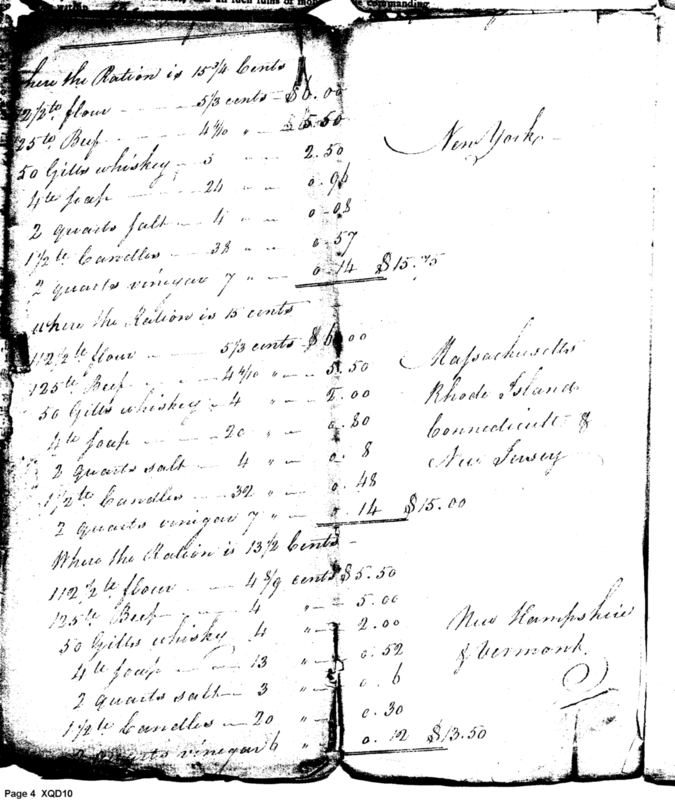 commanding
where the Ration is 15 3/4 Cents
112 1/2 lb flour — 5 1/3 cents — $6.00
125 lb Beef — 4 4/10 " — 5.50
50 Gills whiskey — 5 " — 2.50
4 lb soap — 24 " — 0.96
2 quarts salt — 4 " — 0.08
1 1/2 lb Candles — 38 " — 0.57
2 quarts vinegar 7 " — 0.14 $15.75
New York
where the Ration is 15 cents
112 1/2 lb flour — 5 1/3 cents — $6.00
125 lb Beef — 4 4/10 " — 5.50
50 Gills whiskey — 4 " — 2.00
4 lb soap — 20 " — 0.80
2 quarts salt — 4 " — 0.8
1 1/2 lb Candles — 32 " — 0.48
2 quarts vinegar 7 " — 0.14 $15.00
Massachusetts
Rhode Island
Connecticutt &
New Jersey
Where the Ration is 13 1/2 Cents —
112 1/2 lb flour — 4 8/9 cents $5.50
125 lb Beef — 4 " — 5.00
50 Gills whisky 4 " — 2.00
4 lb soap — 13 " — 0.52
2 quarts salt — 3 " — 0.6
1 1/2 lb Candles — 20 " — 0.30
2 quarts vinegar 6 " 0.12 $13.50
New Hampshire
& Vermont.
Page 4 XQD10